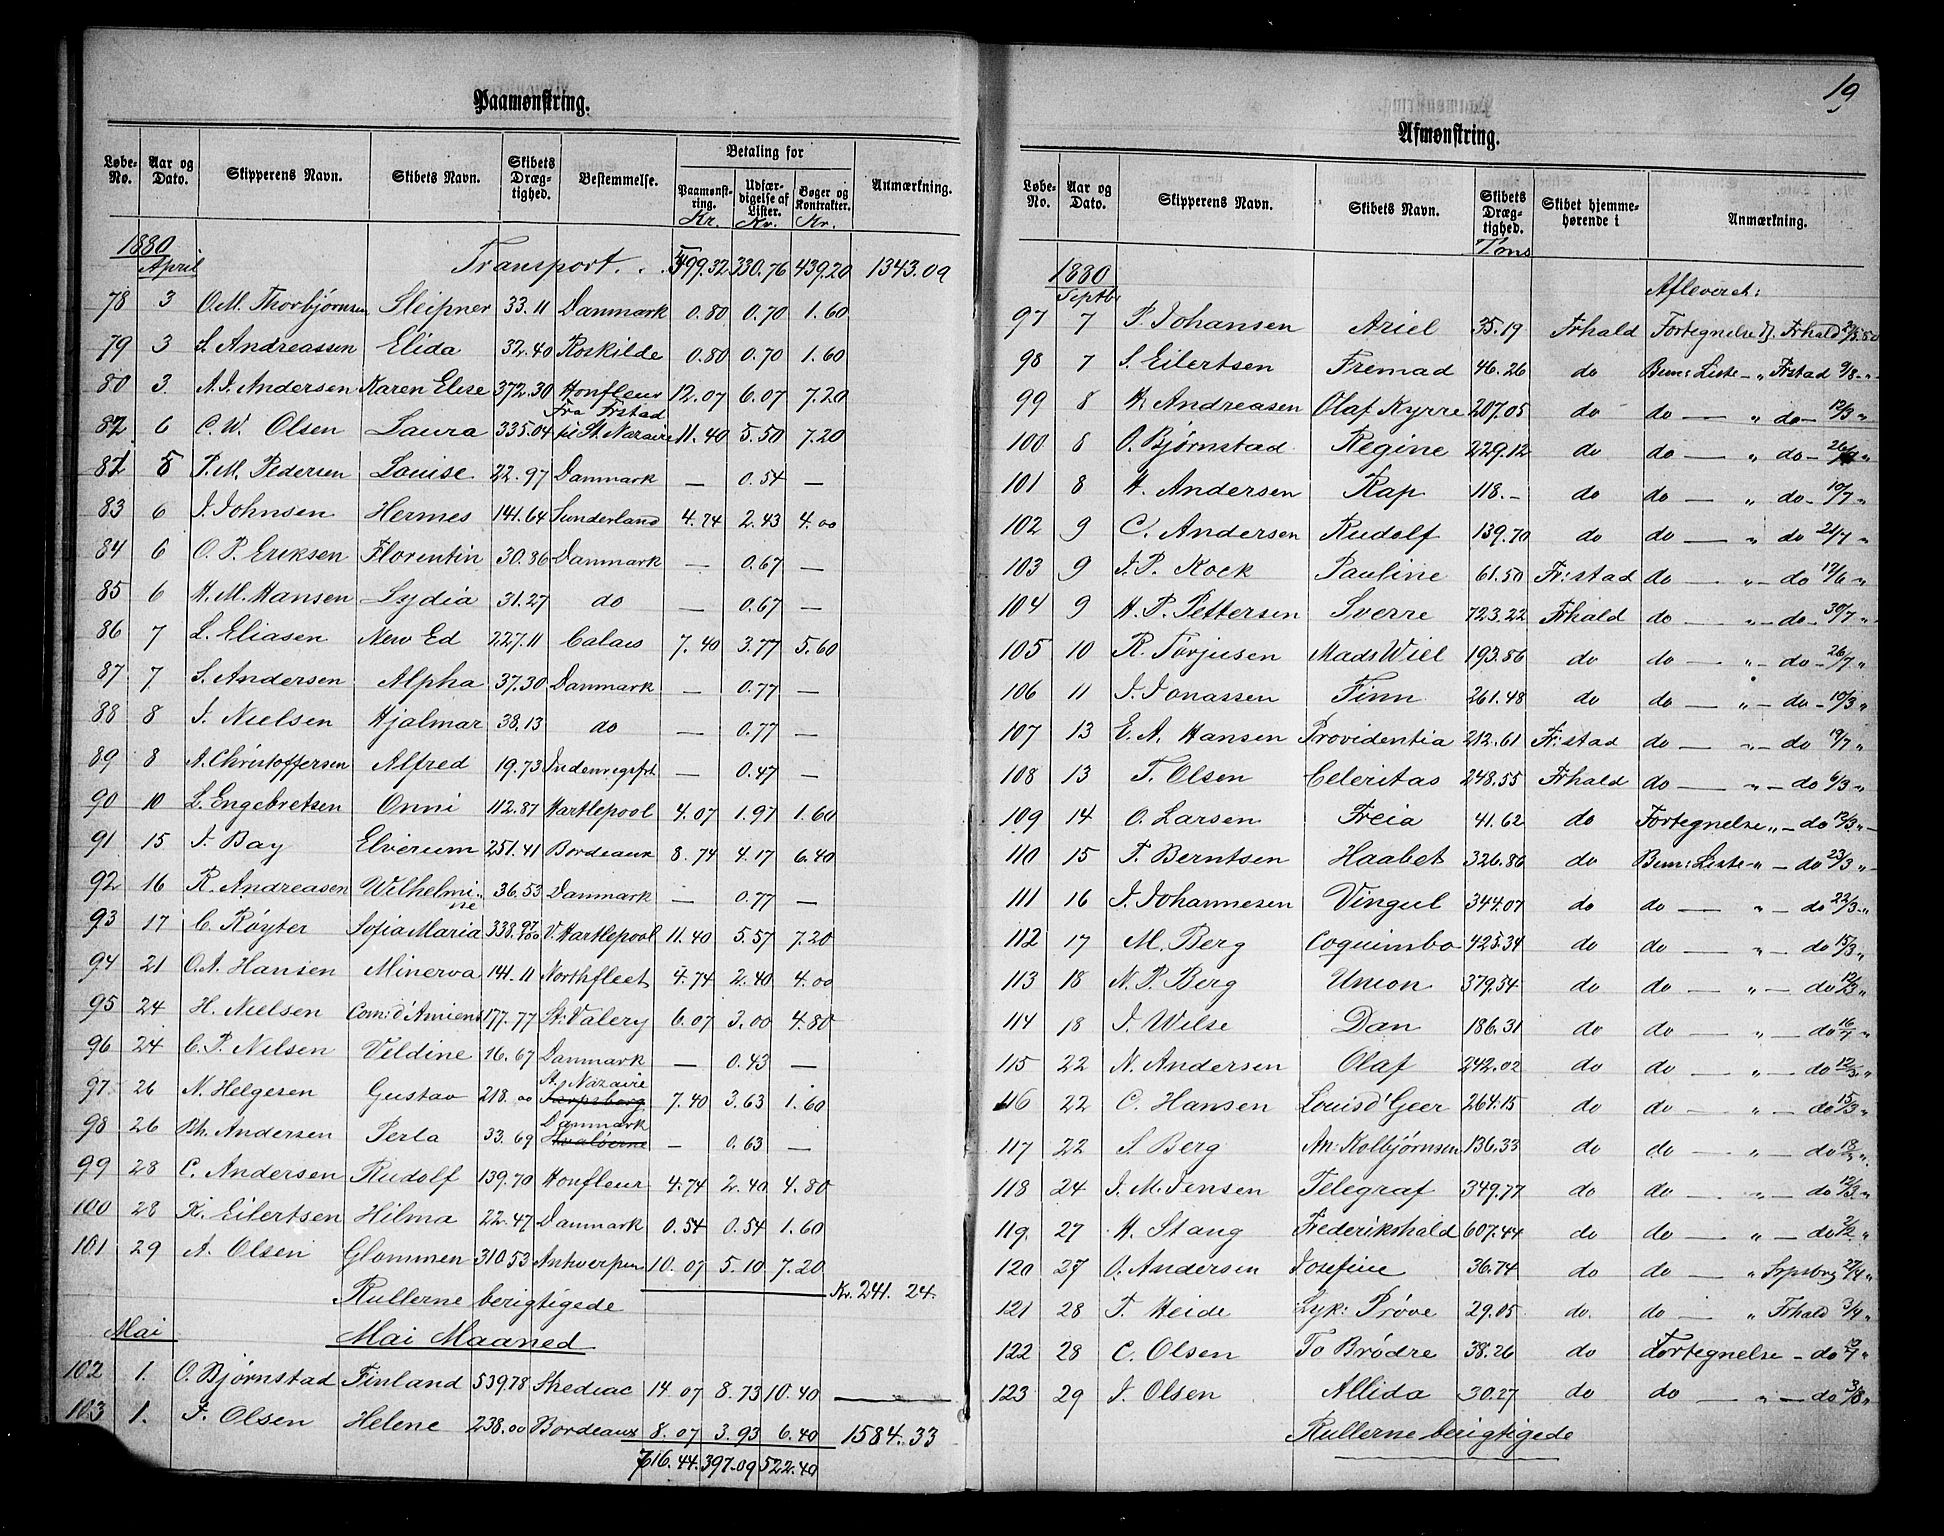 Paamønstring.
Løbe-No. | Aar og Dato. | Skipperens Navn. | Skibets Navn. | Skibets Dræg-tighed. | Bestemmelse. | Betaling for | Anmærkning.
Paamønst-ring. Kr. | Udfær-digelse af Lister. Kr. | Bøger og Kontrakter. Kr.
1880
April Transport. . 599.32 330.76 439.20 1343.09
78 3 O.M. Thorbjørnsen Sleipner 33.11 Danmark 0.80 0.70 1.60
79 3 S. Andreassen Elida 32.40 Roskilde 0.80 0.70 1.60
80 3. A.J. Andersen Karen Elise 372.30 Honfleur 12.07 6.07 7.20
Fra Frstad
82 6 C.W. Olsen Laura 335.04 til St. Nazaire 11.40 5.50 7.20
81 5 P.M. Pedersen Louise 22.97 Danmark — 0.54 —
83 6 J. Johnsen Hermes 141.64 Sunderland 4.74 2.43 4.00
84 6 O.P. Eriksen Florentin 30.86 Danmark — 0.67 —
85 6 H.M. Hansen Lydia 31.27 do — 0.67 —
86 7 L. Eliasen New Ed 227.11 Calais 7.40 3.77 5.60
87 7 S. Andersen Alpha 37.30 Danmark — 0.77 —
88 8 J. Nielsen Hjalmar 38.13 do — 0.77 —
89 8 A. Christoffersen Alfred 19.73 Indenrigsfrt — 0.47 —
90 10 L. Engebretsen Onni 112.87 Hartlepool 4.07 1.97 1.60
91 15 J. Bay Elverum 251.41 Bordeaux 8.74 4.17 6.40
92 16 R. Andreasen Wilhelmi-ne 36.53 Danmark — 0.77 —
93 17 C. Røyter Sofia Maria 338.97/00 V. Hartlepool 11.40 5.57 7.20
94 21 O.A. Hansen Minerva 141.11 Northfleet 4.74 2.40 4.00
95 24 H. Nielsen Com: d'Amiens 177.77 St: Valery 6.07 3.00 4.80
96 24 C.P. Nilsen Veldine 16.67 Danmark — 0.43 —
St. Nazaire
97 26 N. Helgesen Gustav 218.00 Sarpsborg 7.40 3.63 1.60
Danmark
98 26 Bh. Andersen Perla 33.69 Hvaløerne — 0.63 —
99 28 C. Andersen Rudolf 139.70 Honfleur 4.74 2.40 4.80
100 28 K. Eilertsen Hilma 22.47 Danmark 0.54 0.54 1.60
101 29 A. Olsen Glommen 310.53 Antwerpen 10.07 5.10 7.20
Kr. 241.24.
Rullerne berigtigede
Mai Mai Maaned
102 1. O. Bjørnstad Finland 539.78 Shediac 14.07 8.73 10.40
103 1. J. Olsen Helene 238.00 Bordeaux 8.07 3.93 6.40 1584.33
716.44. 397.09 522.40
19
Afmønstring.
Løbe-No. | Aar og Dato. | Skipperens Navn. | Skibets Navn. | Skibets Dræg-tighed. Tons | Skibet hjemme-hørende i | Anmærkning.
1880
Septbr Afleveret:
97 7 P. Johansen Ariel 35.19 Frhald Fortegnelse Frhald
98 7 S. Eilertsen Fremad 46.26 do Bem: Liste — „ Frstad 9/8 - „
99 8 H. Andreasen Olaf Kyrre 207.05 do do — „ do - 12/3 „
100 8 O. Bjørnstad Regine 229.12 do do — „ do - „
101 8 H. Andersen Rap 118.- do do — „ do - 10/7 „
102 9 C. Andersen Rudolf 139.70 do do — „ do 21/7 „
103 9 J.P. Kock Pauline 61.50 Fr:stad do — „ - do 17/6 „
104 9 H.P. Pettersen Sverre 723.22 Frhald do — „ - do - 30/7 „
105 10 R. Tørjusen Mads Wiel 193.86 do do — „ - do - 26/7 „
106 11 J. Jonassen Finn 261.48 do do — „ - do - 10/3 „
107 13 E.A. Hansen Providentia 212.61 Fr:stad do — „ - do 19/7 „
108 13 T. Olsen Celeritas 248.55 Frhald do — „ - do 6/3 „
109 14 O. Larsen Freia 41.62 do Fortegnelse „ - do 12/3 „
110 15 T. Berntsen Haabet 326.86 do Bem: Liste - „ - do 23/3 „
111 16 J. Johannesen Vingul 344.07 do do — „ - do 22/3 „
112 17 M. Berg Coquimbo 425.34 do do — „ - do 15/3 „
113 18 N.P. Berg Union 379.54 do do — „ - do 12/3 „
114 18 J. Wilse Dan 186.31 do do — „ - do 16/7 „
115 22 N. Andersen Olaf 242.02 do do — „ - do 12/3 „
116 22 C. Hansen Louis d'Geer 264.15 do do — „ - do 15/3 „
117 22 S. Berg An: Kolbjørnsen 136.33 do do — „ - do „
118 24 J.M. Jensen Telegraf 349.77 do do — „ - do 12/3 „
119. 27 H. Stang Frederikshald 607.44 do do — „ - do 2/2 „
120 27 O. Andersen Josefine 36.74 do do — „ Srpsbrg 27/4 „
121 28 T. Heide Lyk: Prøve 29.05 do. do - „ Frhald 3/4 „
122 28 C. Olsen To Brødre 38.26 do Fortegnelse - do „
123 29 J. Olsen Allida 30.27 do do — „ - do 3/8 „
Rullerne berigtigede